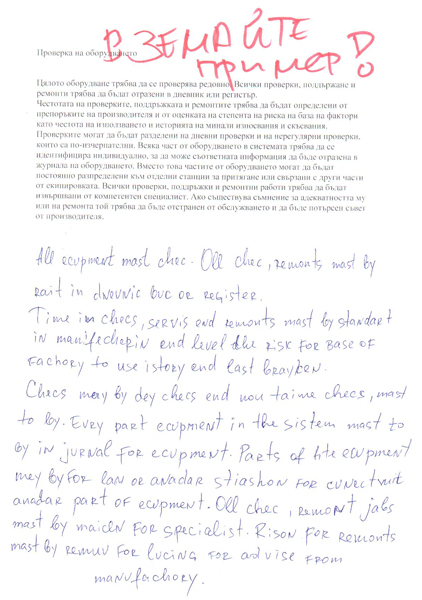 ВЗЕМАЙТЕ
ПРИМЕР!
Проверка на оборудването
Цялото оборудване трябва да се проверява редовно. Всички проверки, поддържане и
ремонти трябва да бъдат отразени в дневник или регистър.
Честотата на проверките, поддръжката и ремонтите трябва да бъдат определени от
препоръките на производителя и от оценката на степента на риска на база на фактори
като честота на използването и историята на минали износвания и скъсвания.
Проверките могат да бъдат разделени на дневни проверки и на нерегулярни проверки,
които са по-изчерпателни. Всяка част от оборудването в системата трябва да се
идентифицира индивидуално, за да може съответната информация да бъде отразена в
журнала на оборудването. Вместо това частите от оборудването могат да бъдат
постоянно разпределени към отделни станции за притягане или свързани с други части
от екипировката. Всички проверки, поддръжки и ремонтни работи трябва да бъдат
извършвани от компетентен специалист. Ако съществува съмнение за адекватността му
или на ремонта той трябва да бъде отстранен от обслужването и да бъде потърсен съвет
от производителя.
All ecupment mast chec. Oll chec, remonts mast by
rait in dnevnic buc or register.
Time in checs, servis end remonts mast by standart
in manifechorin end level the risk for base of
fachory to use istory end last brayken.
Checs may by dey checs end nou taime checs, mast
to by. Evry part ecupment in the sistem mast to
by in jurnal for ecupment. Parts of hte ecupment
mey by for lan or anadar stiashon for cunectruit
anadar part of ecupment. Oll chec, remont jabs
mast by maicen for specialist. Rison for remonts
mast by remuv for lucing for advise from
manufachory.